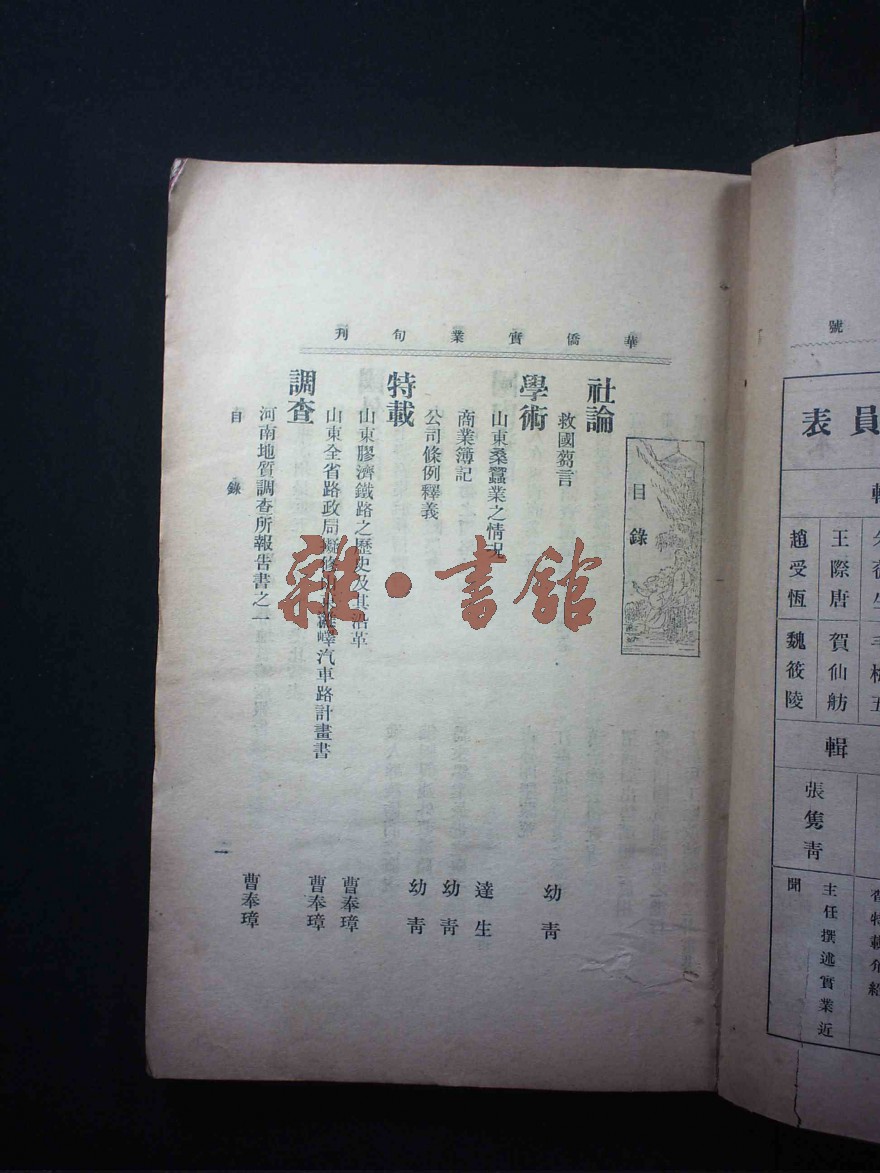 華僑實業旬刊
目錄
社論
救國芻言 幼青
學術
山東桑蠶業之情况 達生
商業簿記 幼青
公司條例釋義 幼青
特載
山東膠濟鐵路之歷史及其沿革 曹奉璋
山東全省路政局擬修 嶧汽車路計畫書 曹奉璋
調查
河南地質調查所報告書之一 曹奉璋
目錄
一
雜·書館
號
員表
輯
王際唐 賀仙舫
趙受恆 魏筱陵
輯
張雋青
主任撰述實業近
聞